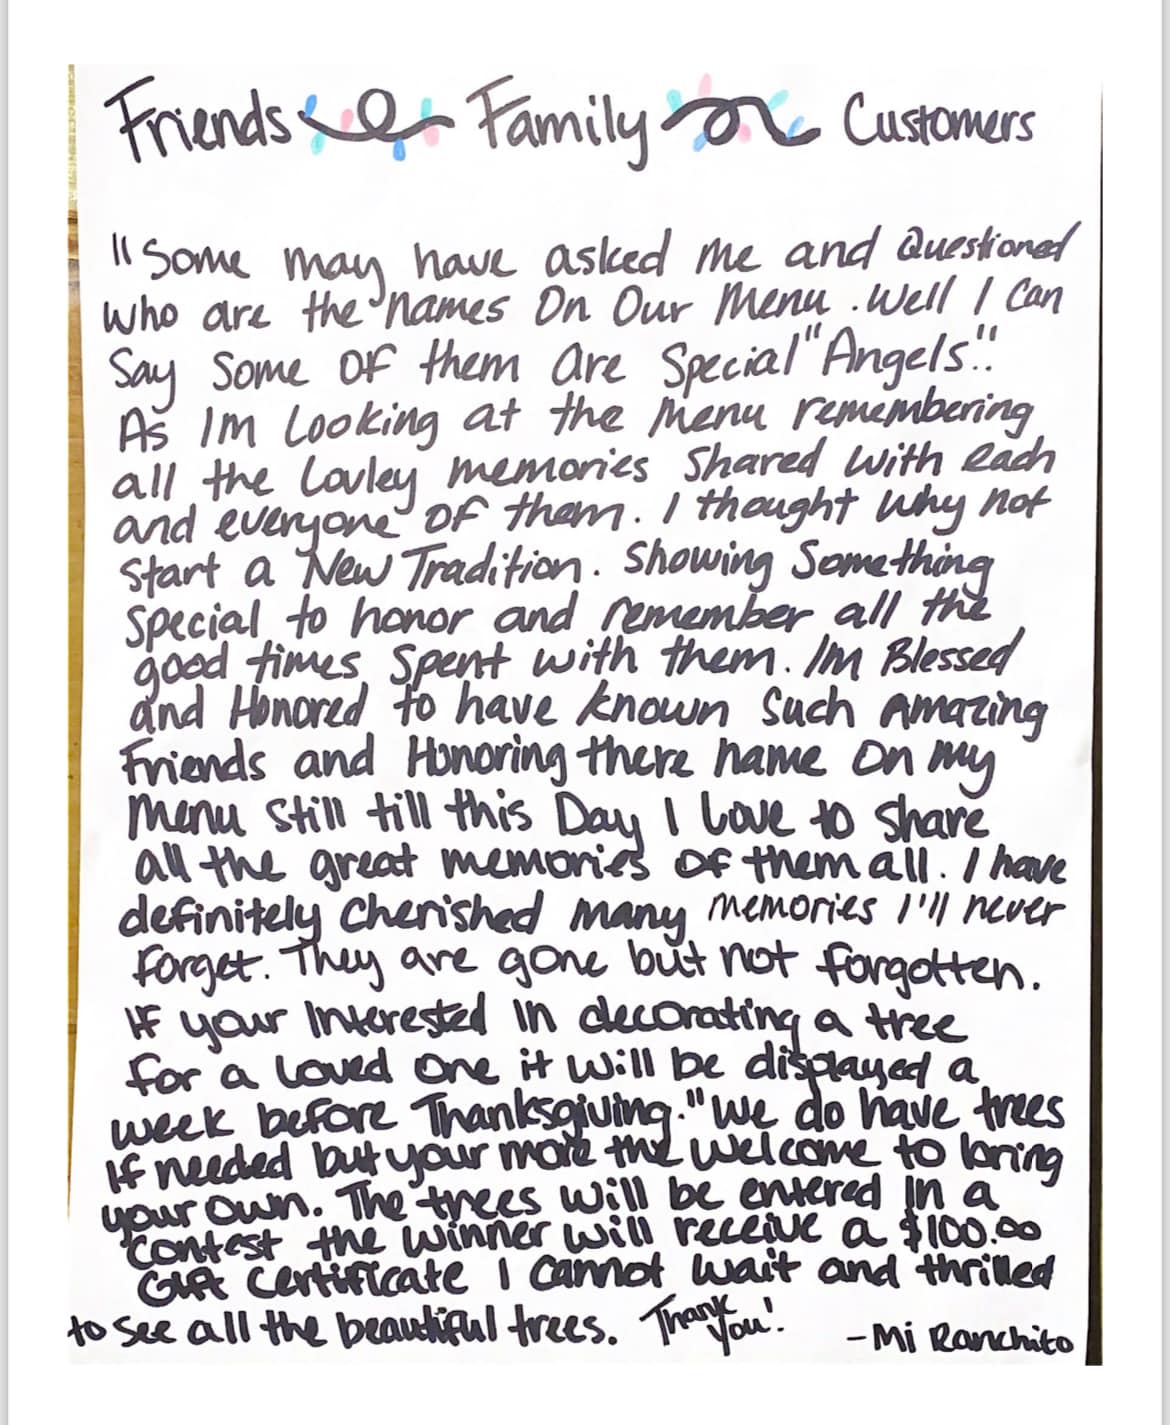 Friends Family Customers
"Some may have asked me and Questioned
who are the names On Our Menu. Well I Can
Say Some OF them Are Special "Angels".
As Im Looking at the Menu remembering
all the Lovley memories Shared with each
and everyone OF them. I thought why not
Start a New Tradition. Showing Something
Special to honor and remember all the
good times Spent with them. Im Blessed
and Honored to have known Such Amazing
Friends and Honoring there name On my
Menu Still till this Day I Love to Share
all the great memories OF them all. I have
definitely Cherished Many memories I'll never
Forget. They are gone but not forgotten.
IF your Interested In decorating a tree
for a Loved One it will be displayed a
week before Thanksgiving." We do have trees
If needed but your more the welcome to bring
your own. The trees will be entered In a
Contest the winner will receive a $100.00
Gift Certificate I Cannot wait and thrilled
to See all the beautiful trees. Thank You!
-Mi Ranchito